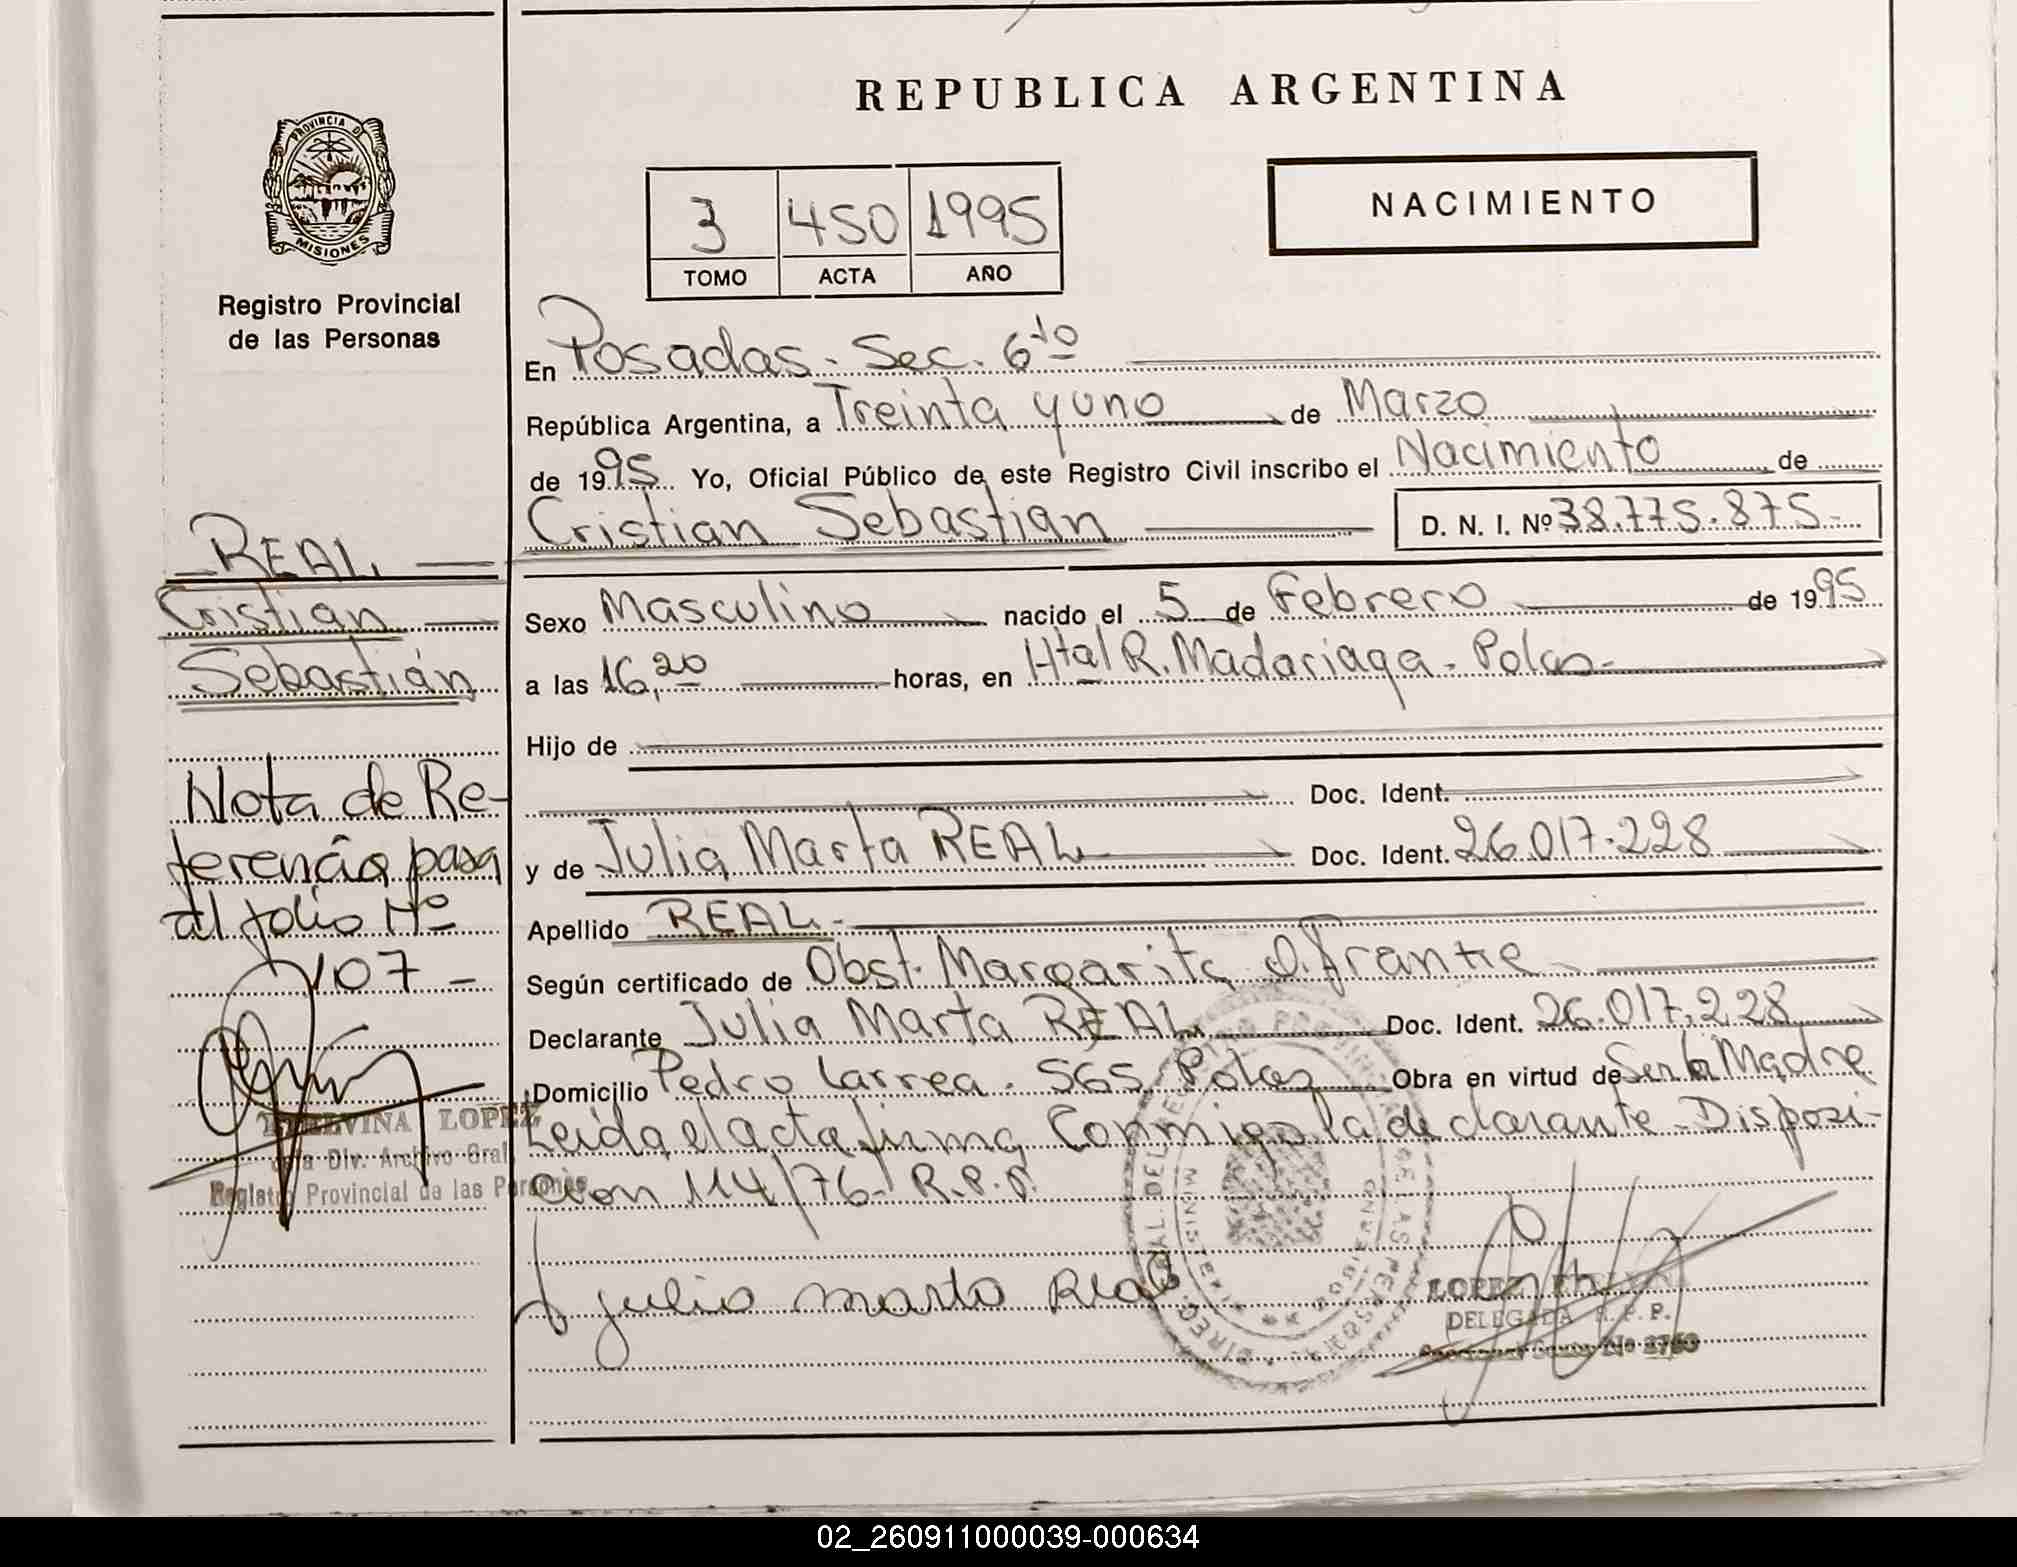 PROVINCIA DE
MISIONES
Registro Provincial
de las Personas
REPUBLICA ARGENTINA
NACIMIENTO
3 450 1995
TOMO ACTA AÑO
En Posadas. Sec. 6to
República Argentina, a Treinta y uno de Marzo
de 1995 Yo, Oficial Público de este Registro Civil inscribo el Nacimiento de
Cristian Sebastian D. N. I. Nº 38.775.875-
Sexo Masculino nacido el 5 de Febrero de 1995
a las 16,20 horas, en Htal R. Madariaga - Pdas-
Hijo de
Doc. Ident.
y de Julia Marta REAL Doc. Ident. 26.017.228
Apellido REAL.-
Según certificado de Obst. Margarita
Declarante Julia Marta REAL Doc. Ident. 26.017.228
Domicilio Pedro Larrea. 565 Pdas Obra en virtud de Ser la Madre
Leida el acta firma Conmigo la declarante - Disposi-
cion 114/76- R.P.P.
julia marta Real
LOPEZ
DELEGADA R. P. P.
REAL
Cristian
Sebastián
Nota de Re-
ferencia pasa
al folio Nº
107 -
LOPEZ
Div. Archivo Gral.
Registro Provincial de las Personas
02_260911000039-000634